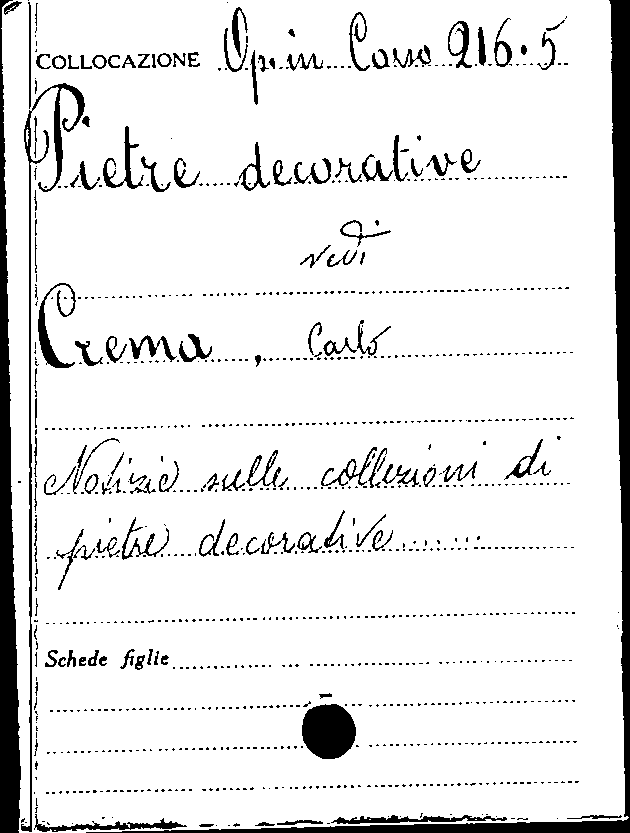 COLLOCAZIONE Op. in Corso 216.5
Pietre decorative
vedi
Crema, Carlo
Notizie sulle collezioni di
pietre decorative.......
Schede figlie